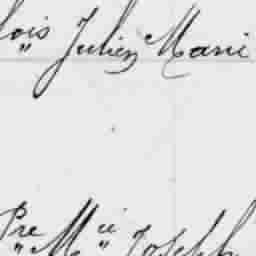 lois Julien Marie
Pre Mie Joseph